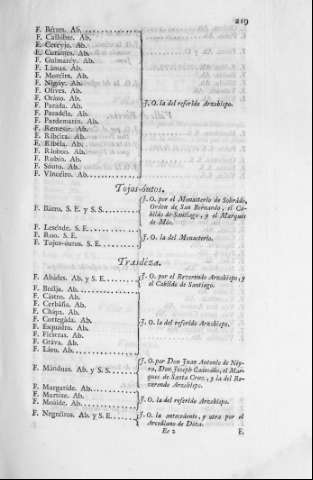 219
F. Ab.
F. Calbibre. Ab.
F. Cereyjo. Ab.
F. Curantes. Ab.
F. Guimaréy. Ab.
F. Lamas. Ab.
F. Moreira. Ab.
F. Nigóy. Ab.
F. Olives. Ab.
F. Orazo. Ab.
F. Parada. Ab.
F. Paradéla. Ab.
F. Pardemarin. Ab.
F. Remesar. Ab.
F. Ribeira. Ab.
F. Ribéla. Ab.
F. Riobóo. Ab.
F. Rubin. Ab.
F. Ab.
F. Vinseiro. Ab.
J. O. la del referido Arzobispo.
Tojos-óutos.
F. Barro. S. E. y S. S.
J. O. por el Monasterio de Sobrádo,
Orden de San Bernardo, el Cabildo
de Santiago, y el Marqués
de Mós.
F. Lesénde. S. E.
F. Roo. S. E.
F. Tojos-óutos. S. E.
J. O. la del Monasterio.
Trasdéza.
F. Abádes. Ab. y S. E.
J. O. por el Reverendo Arzobispo, y
el Cabildo de Santiago.
F. Breija. Ab.
F. Cistro. Ab.
F. Cerbáña. Ab.
F. Chápa. Ab.
F. Cortegáda. Ab.
F. Esquadro. Ab.
F. Fiestras. Ab.
F. Gráva. Ab.
F. Láro. Ab.
J. O. la del referido Arzobispo.
F. Mánduas. Ab. y S. S.
J. O. por Don Juan Antonio de
Don Joseph el Marqués
de Santa Cruz, y la del Reverendo
Arzobispo.
F. Margaride. Ab.
F. Martixe. Ab.
F. Moálde. Ab.
J. O. la del referido Arzobispo.
F. Negreiros. Ab. y S. E.
J. O. la antecedente, y otra por el
Arcediano de Déza.
Ee 2
F.